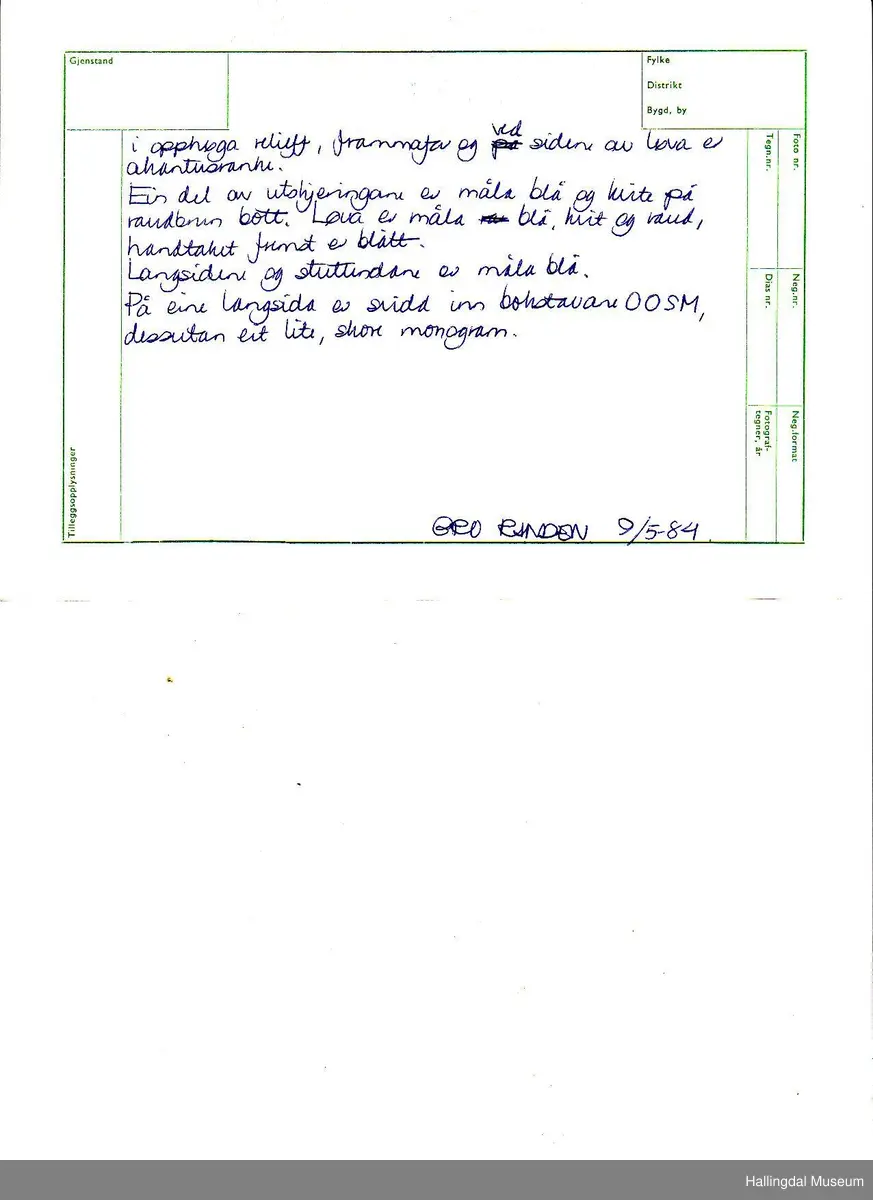 Gjenstand
Fylke
Distrikt
Bygd, by
i opphøga relieff, frammafor og ved sidene av løva er
akantusranke.
Ein del av utskjeringane er måla blå og kvite på
raudbrun bott. Løva er måla blå, kvit og raud,
handtaket fremst er blått.
Langsidene og stuttendane er måla blå.
På eine langsida er svidd inn bokstavane OOSM,
dessutan eit lite, skore monogram.
GRO RINDEN 9/5-84
Tilleggsopplysninger
Tegn.nr.
Foto nr.
Dias nr.
Neg.nr.
Fotograf-
tegner, år
Neg.format
Hallingdal Museum